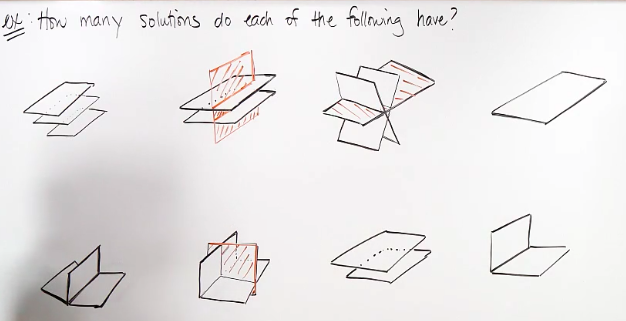 ex: How many solutions do each of the following have?